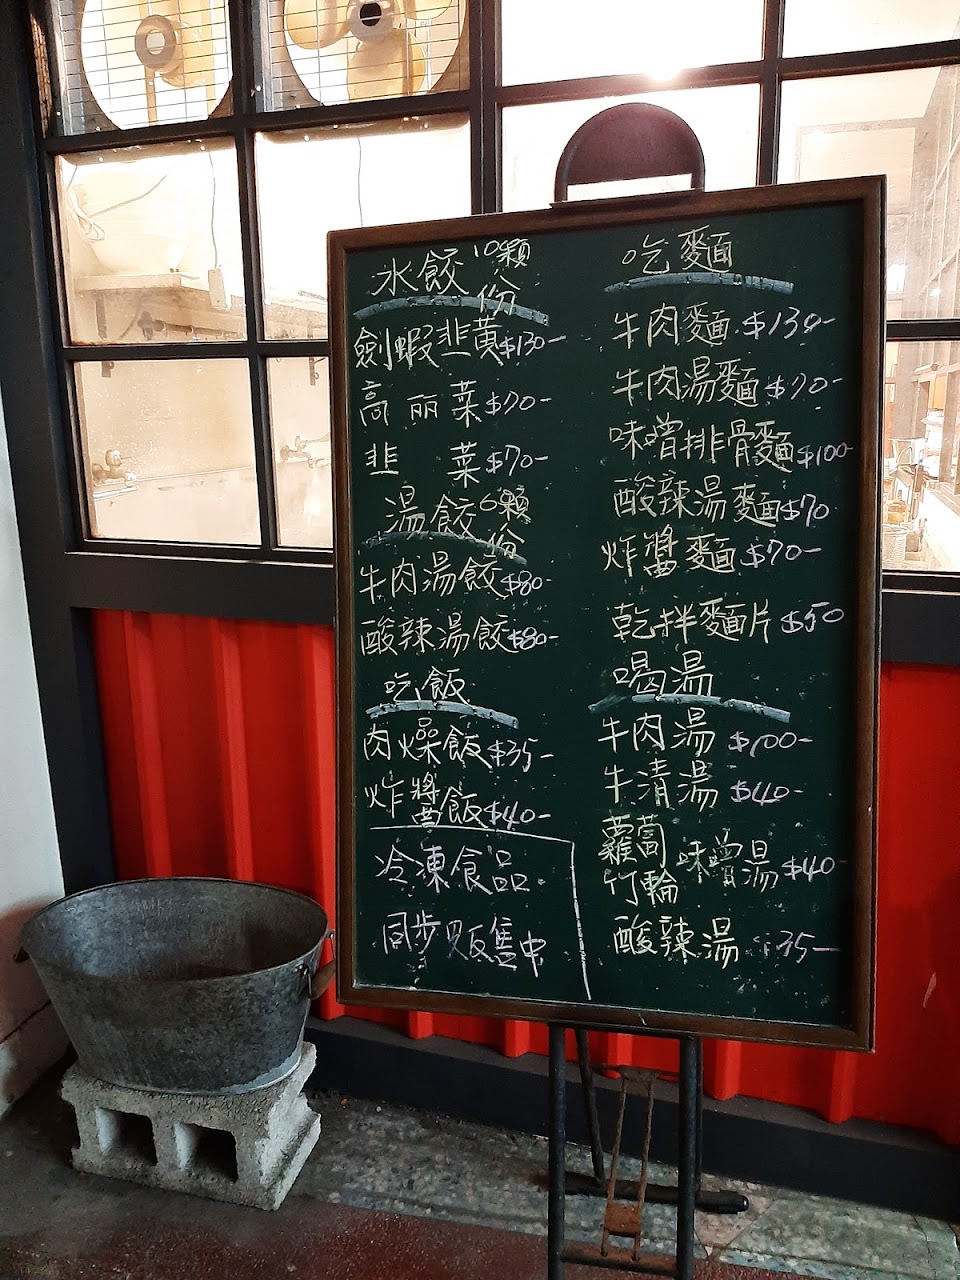 水餃 10顆份
劍蝦韭黃$130-
高丽菜$70-
韭菜$70-
湯餃 6顆份
牛肉湯餃$80-
酸辣湯餃$80-
吃飯
肉燥飯$35-
炸醬飯$40-
冷凍食品
同步販售中
吃麵
牛肉麵$130-
牛肉湯麵$70-
味噌排骨麵$100-
酸辣湯麵$70
炸醬麵$70-
乾拌麵片$50
喝湯
牛肉湯$100-
牛清湯$40-
蘿蔔竹輪味噌湯$40-
酸辣湯$35-